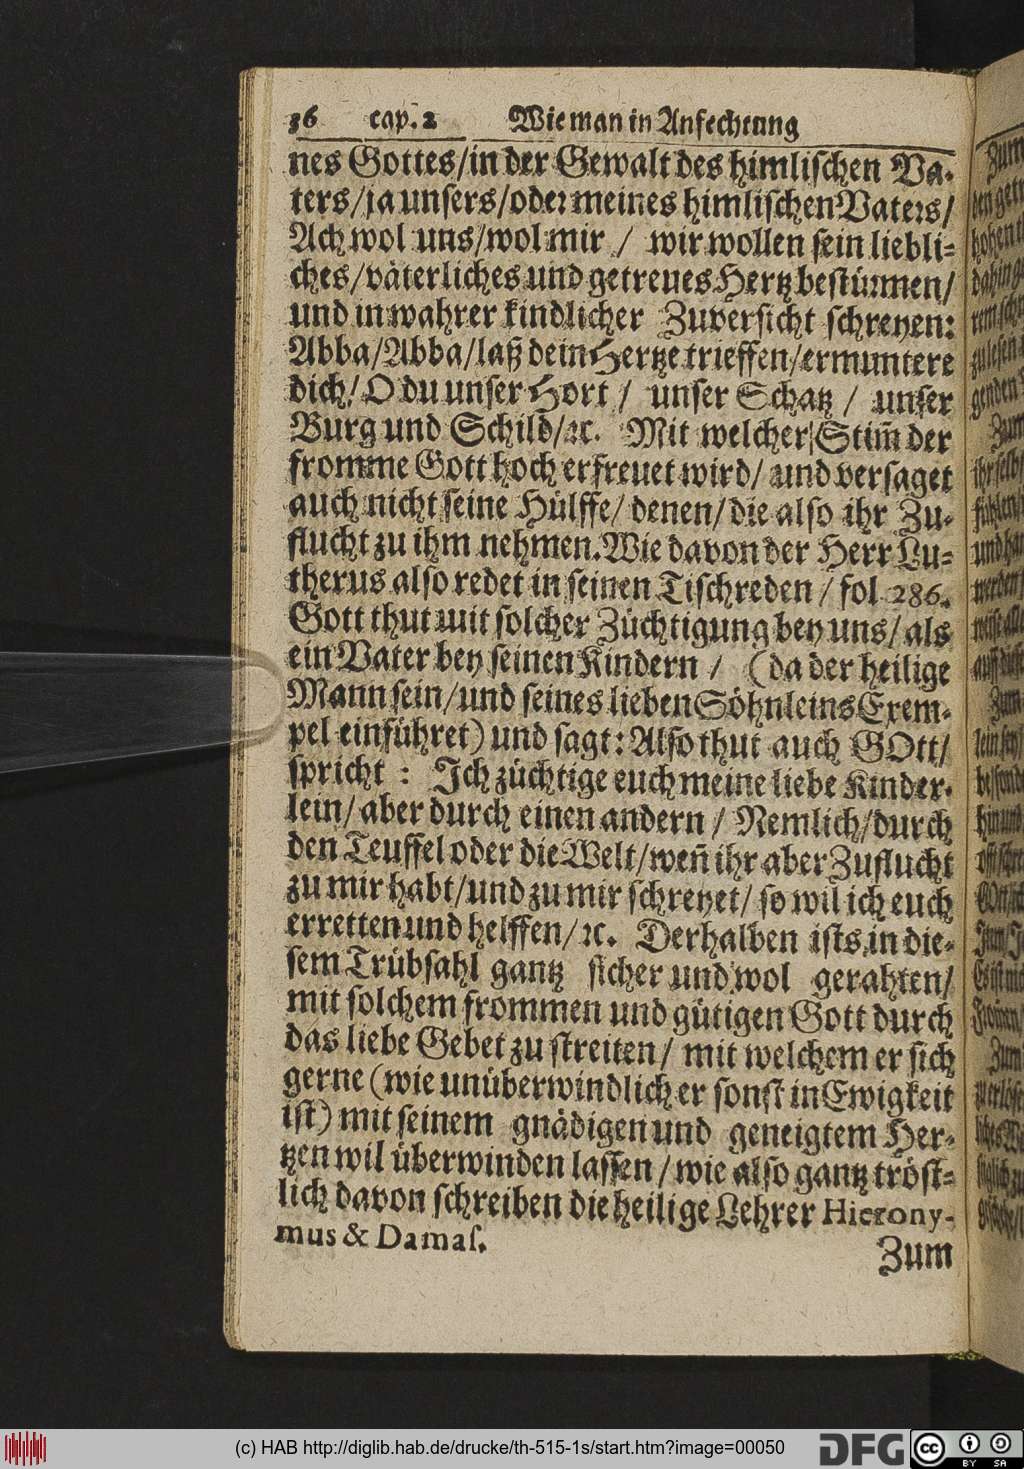 36 cap. 2 Wie man in Anfechtung
nes Gottes/in der Gewalt des himlischen Va-
ters/ja unsers/oder meines himlischen Vaters/
Ach wol uns/wol mir / wir wollen sein liebli-
ches/väterliches und getreues Hertz bestürmen/
und in wahrer kindlicher Zuversicht schreyen:
Abba/Abba/laß dein Hertze trieffen/ermuntere
dich/O du unser Hort / unser Schatz / unser
Burg und Schild/ꝛc. Mit welcher Stim̃ der
fromme Gott hoch erfreuet wird/ und versaget
auch nicht seine Hülffe/ denen/die also ihr Zu-
flucht zu ihm nehmen.Wie davon der Herr Lu-
therus also redet in seinen Tischreden / fol 286.
Gott thut mit solcher Züchtigung bey uns/ als
ein Vater bey seinen Kindern / (da der heilige
Mann sein/und seines lieben Söhnleins Exem-
pel einführet) und sagt: Also thut auch GOtt/
spricht : Ich züchtige euch meine liebe Kinder-
lein/ aber durch einen andern / Nemlich/durch
den Teuffel oder die Welt/wen̄ ihr aber Zuflucht
zu mir habt/und zu mir schreyet/ so wil ich euch
erretten und helffen/ꝛc. Derhalben ists in die-
sem Trübsahl gantz sicher und wol gerahten/
mit solchem frommen und gütigen Gott durch
das liebe Gebet zu streiten/ mit welchem er sich
gerne (wie unüberwindlich er sonst in Ewigkeit
ist) mit seinem gnädigen und geneigtem Her-
tzen wil überwinden lassen / wie also gantz tröst-
lich davon schreiben die heilige Lehrer Hierony-
mus & Damas.
Zum
(c) HAB http://diglib.hab.de/drucke/th-515-1s/start.htm?image=00050
DFG
cc BY SA